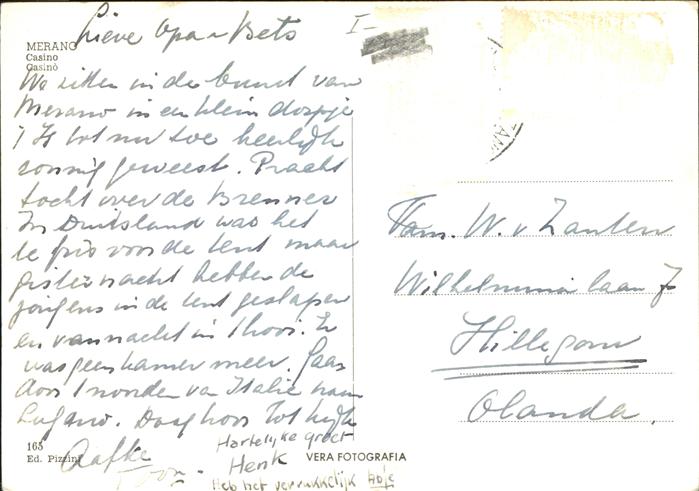 Lieve Opa + Bets
MERANO
Casino
Casinò
We zitten in de buurt van
Merano in een klein dorpje
't Is tot nu toe heerlijk
zonnig geweest. Pracht
tocht over de Brenner
In Duitsland was het
te fris voor de tent maar
gisternacht hebben de
jongens in de tent geslapen
en vannacht in 't hooi. Er
was geen kamer meer. Gaan
door 't noorden van Italië naar
Lugano. Daag hoor tot kijk
Aafke
Toon.
Hartelijke groet
Henk
Heb het verrukkelijk
165
Ed. Pizzini
VERA FOTOGRAFIA
I-
Fam. W. v Zanten
Wilhelmina laan 7
Hillegom
Olanda.